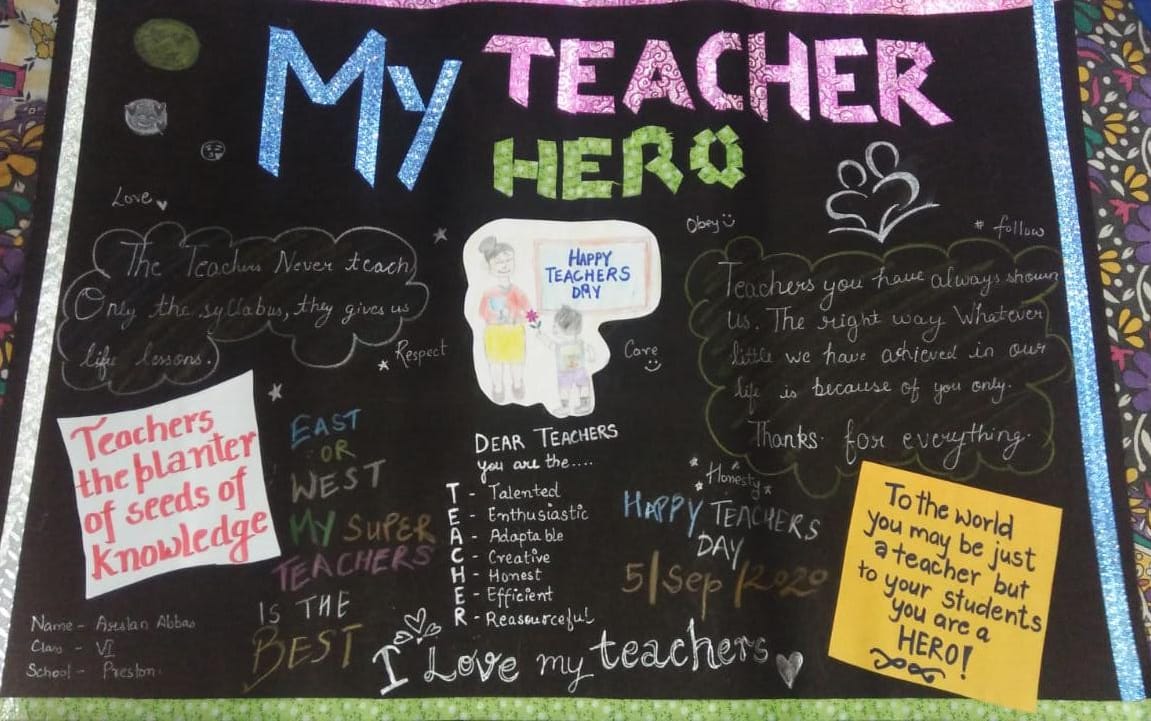 My TEACHER
HERO
Love
The Teachers Never teach
Only the syllabus, they gives us
life lessons.
Respect
HAPPY
TEACHERS
DAY
Obey
Care
# follow
Teachers you have always shown
us. The right way Whatever
little we have achieved in our
life is because of you only.
Thanks for everything.
Teachers
the planter
of seeds of
Knowledge
EAST
OR
WEST
MY SUPER
TEACHERS
IS THE
BEST
DEAR TEACHERS
you are the....
T - Talented
E - Enthusiastic
A - Adaptable
C - Creative
H - Honest
E - Efficient
R - Reasourceful
Honesty
HAPPY TEACHERS
DAY
5/Sep/2020
To the world
you may be just
a teacher but
to your students
you are a
HERO!
Name - Arslan Abbas
Class - VI
School - Preston
I Love my teachers